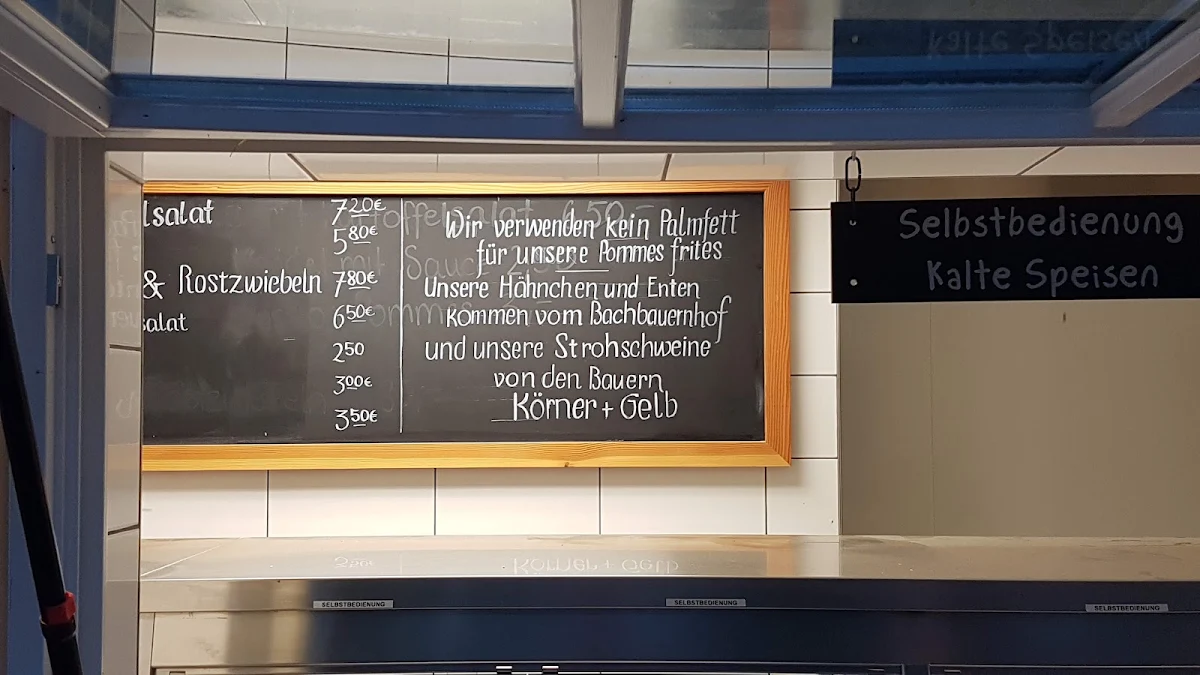 lsalat 7 20€
5 80€
& Rostzwiebeln 7 80€
salat 6 50€
2 50
3 00€
3 50€
Wir verwenden kein Palmfett
für unsere Pommes frites
Unsere Hähnchen und Enten
kommen vom Bachbauernhof
und unsere Strohschweine
von den Bauern
Körner + Gelb
Selbstbedienung
Kalte Speisen
SELBSTBEDIENUNG
SELBSTBEDIENUNG
SELBSTBEDIENUNG